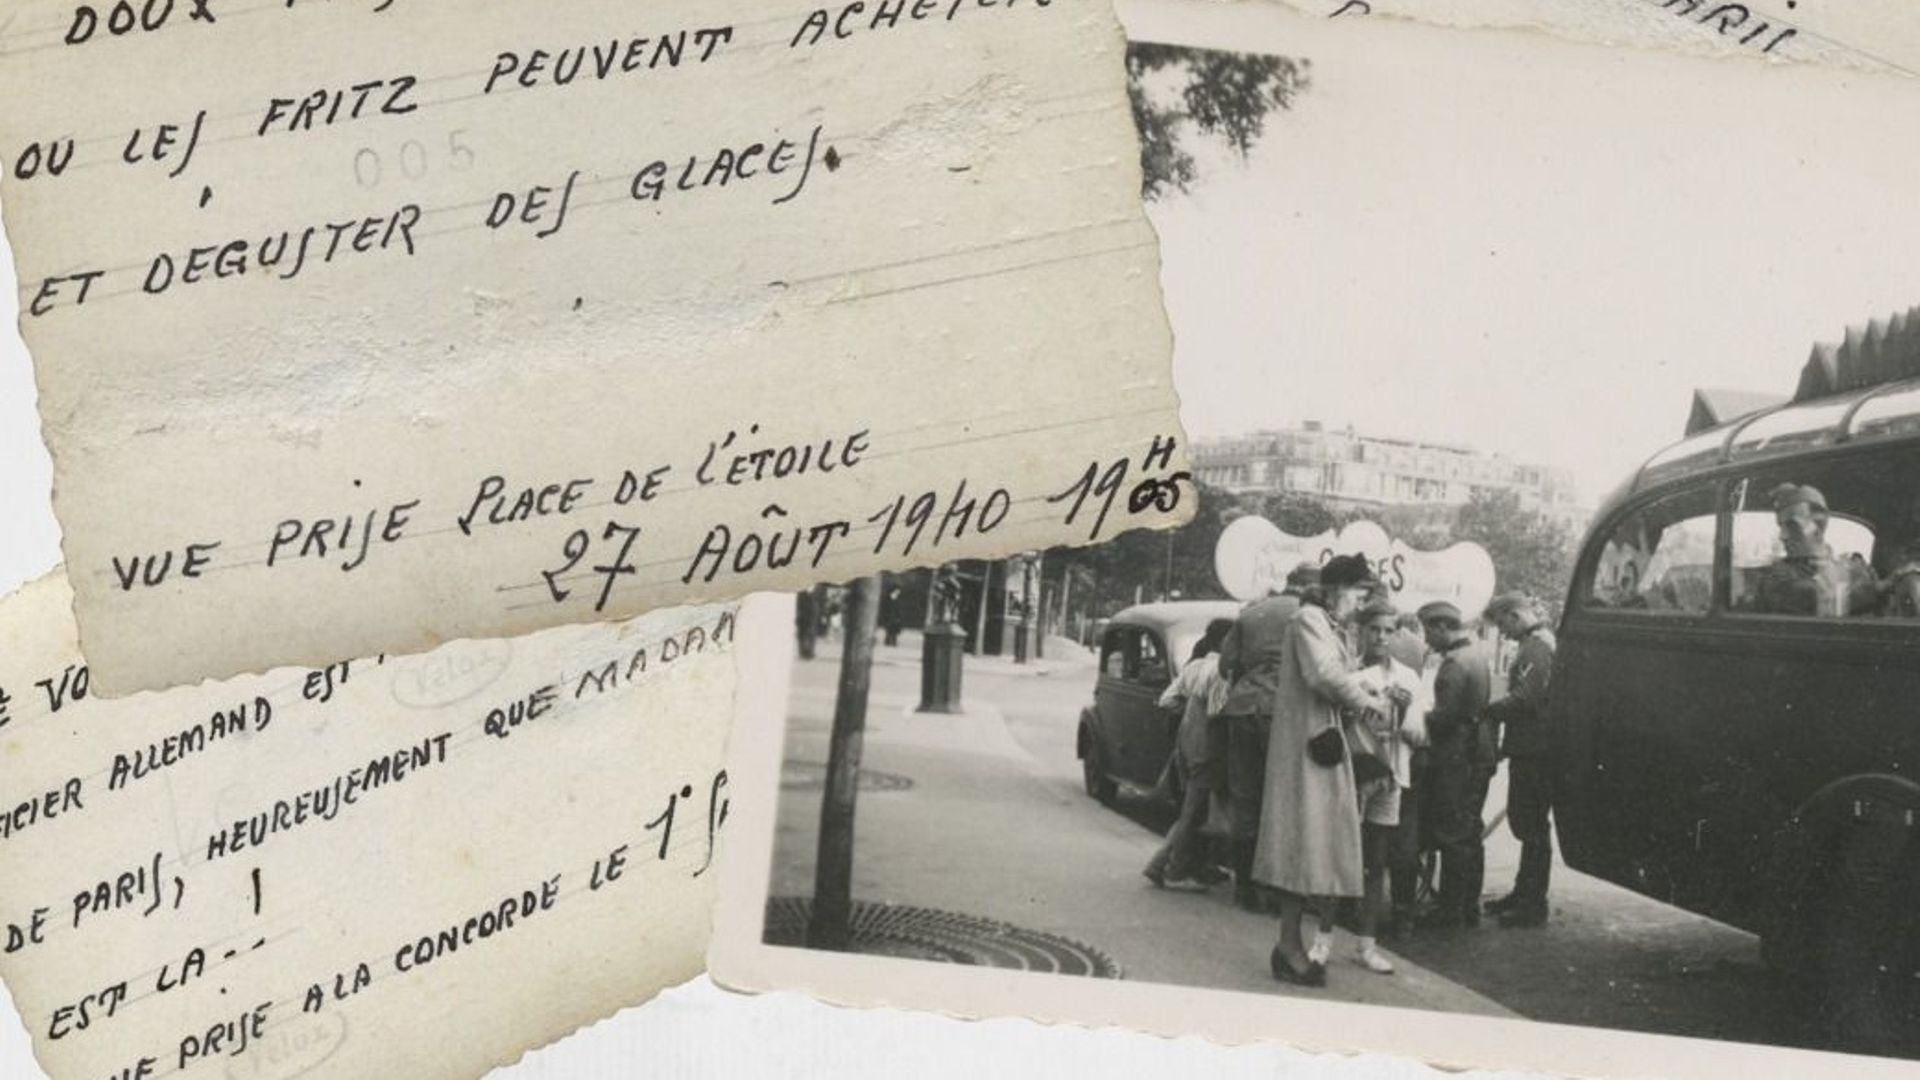 DOUX
OU LES FRITZ PEUVENT ACHETER
005
ET DEGUSTER DES GLACES.
VUE PRISE PLACE DE L'ÉTOILE
27 AOÛT 1940 19H05
VO
ALLEMAND EST
DE PARIS, HEUREUSEMENT QUE MADAM
EST LA -- !
PRISE A LA CONCORDE LE 1°
Velox
Velox